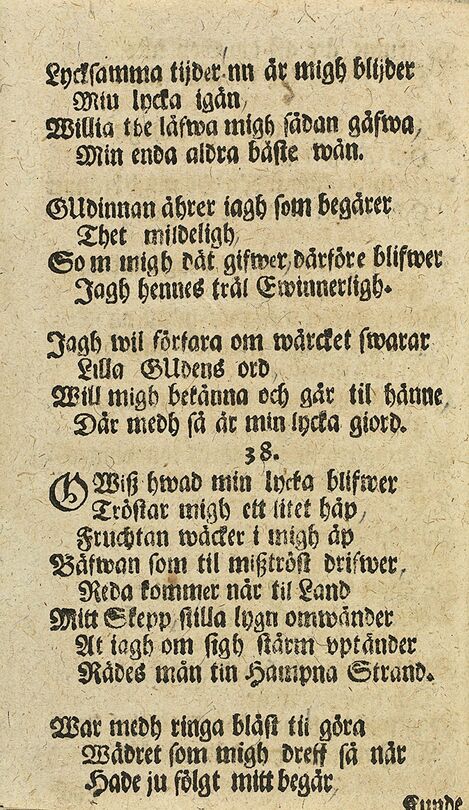 Lycksamma tijder nn är migh blijder
Min lycka igän,
Willia the låfwa migh sådan gåfwa,
Min enda aldra bäste wän.
GUdinnan ährer iagh som begärer
Thet mildeligh,
So m migh dät gifwer, därföre blifwer
Jagh hennes träl Ewinnerligh.
Jagh wil förfara om wärcket swarar
Lilla GUdens ord,
Will migh bekänna och går til hänne,
Där medh så är min lycka giord.
38.
OWiß hwad min lycka blifwer
Tröstar migh ett litet håp,
Fruchtan wäcker i migh åp
Bäfwan som til mißtröst drifwer,
Reda kommer när til Land
Mitt Skepp, stilla lygn omwänder
At iagh om sigh stårm vptänder
Rädes mån tin Hampna Strand.
War medh ringa bläst til göra
Wädret som migh dreff så när
Hade ju fölgt mitt begär,
Kunde